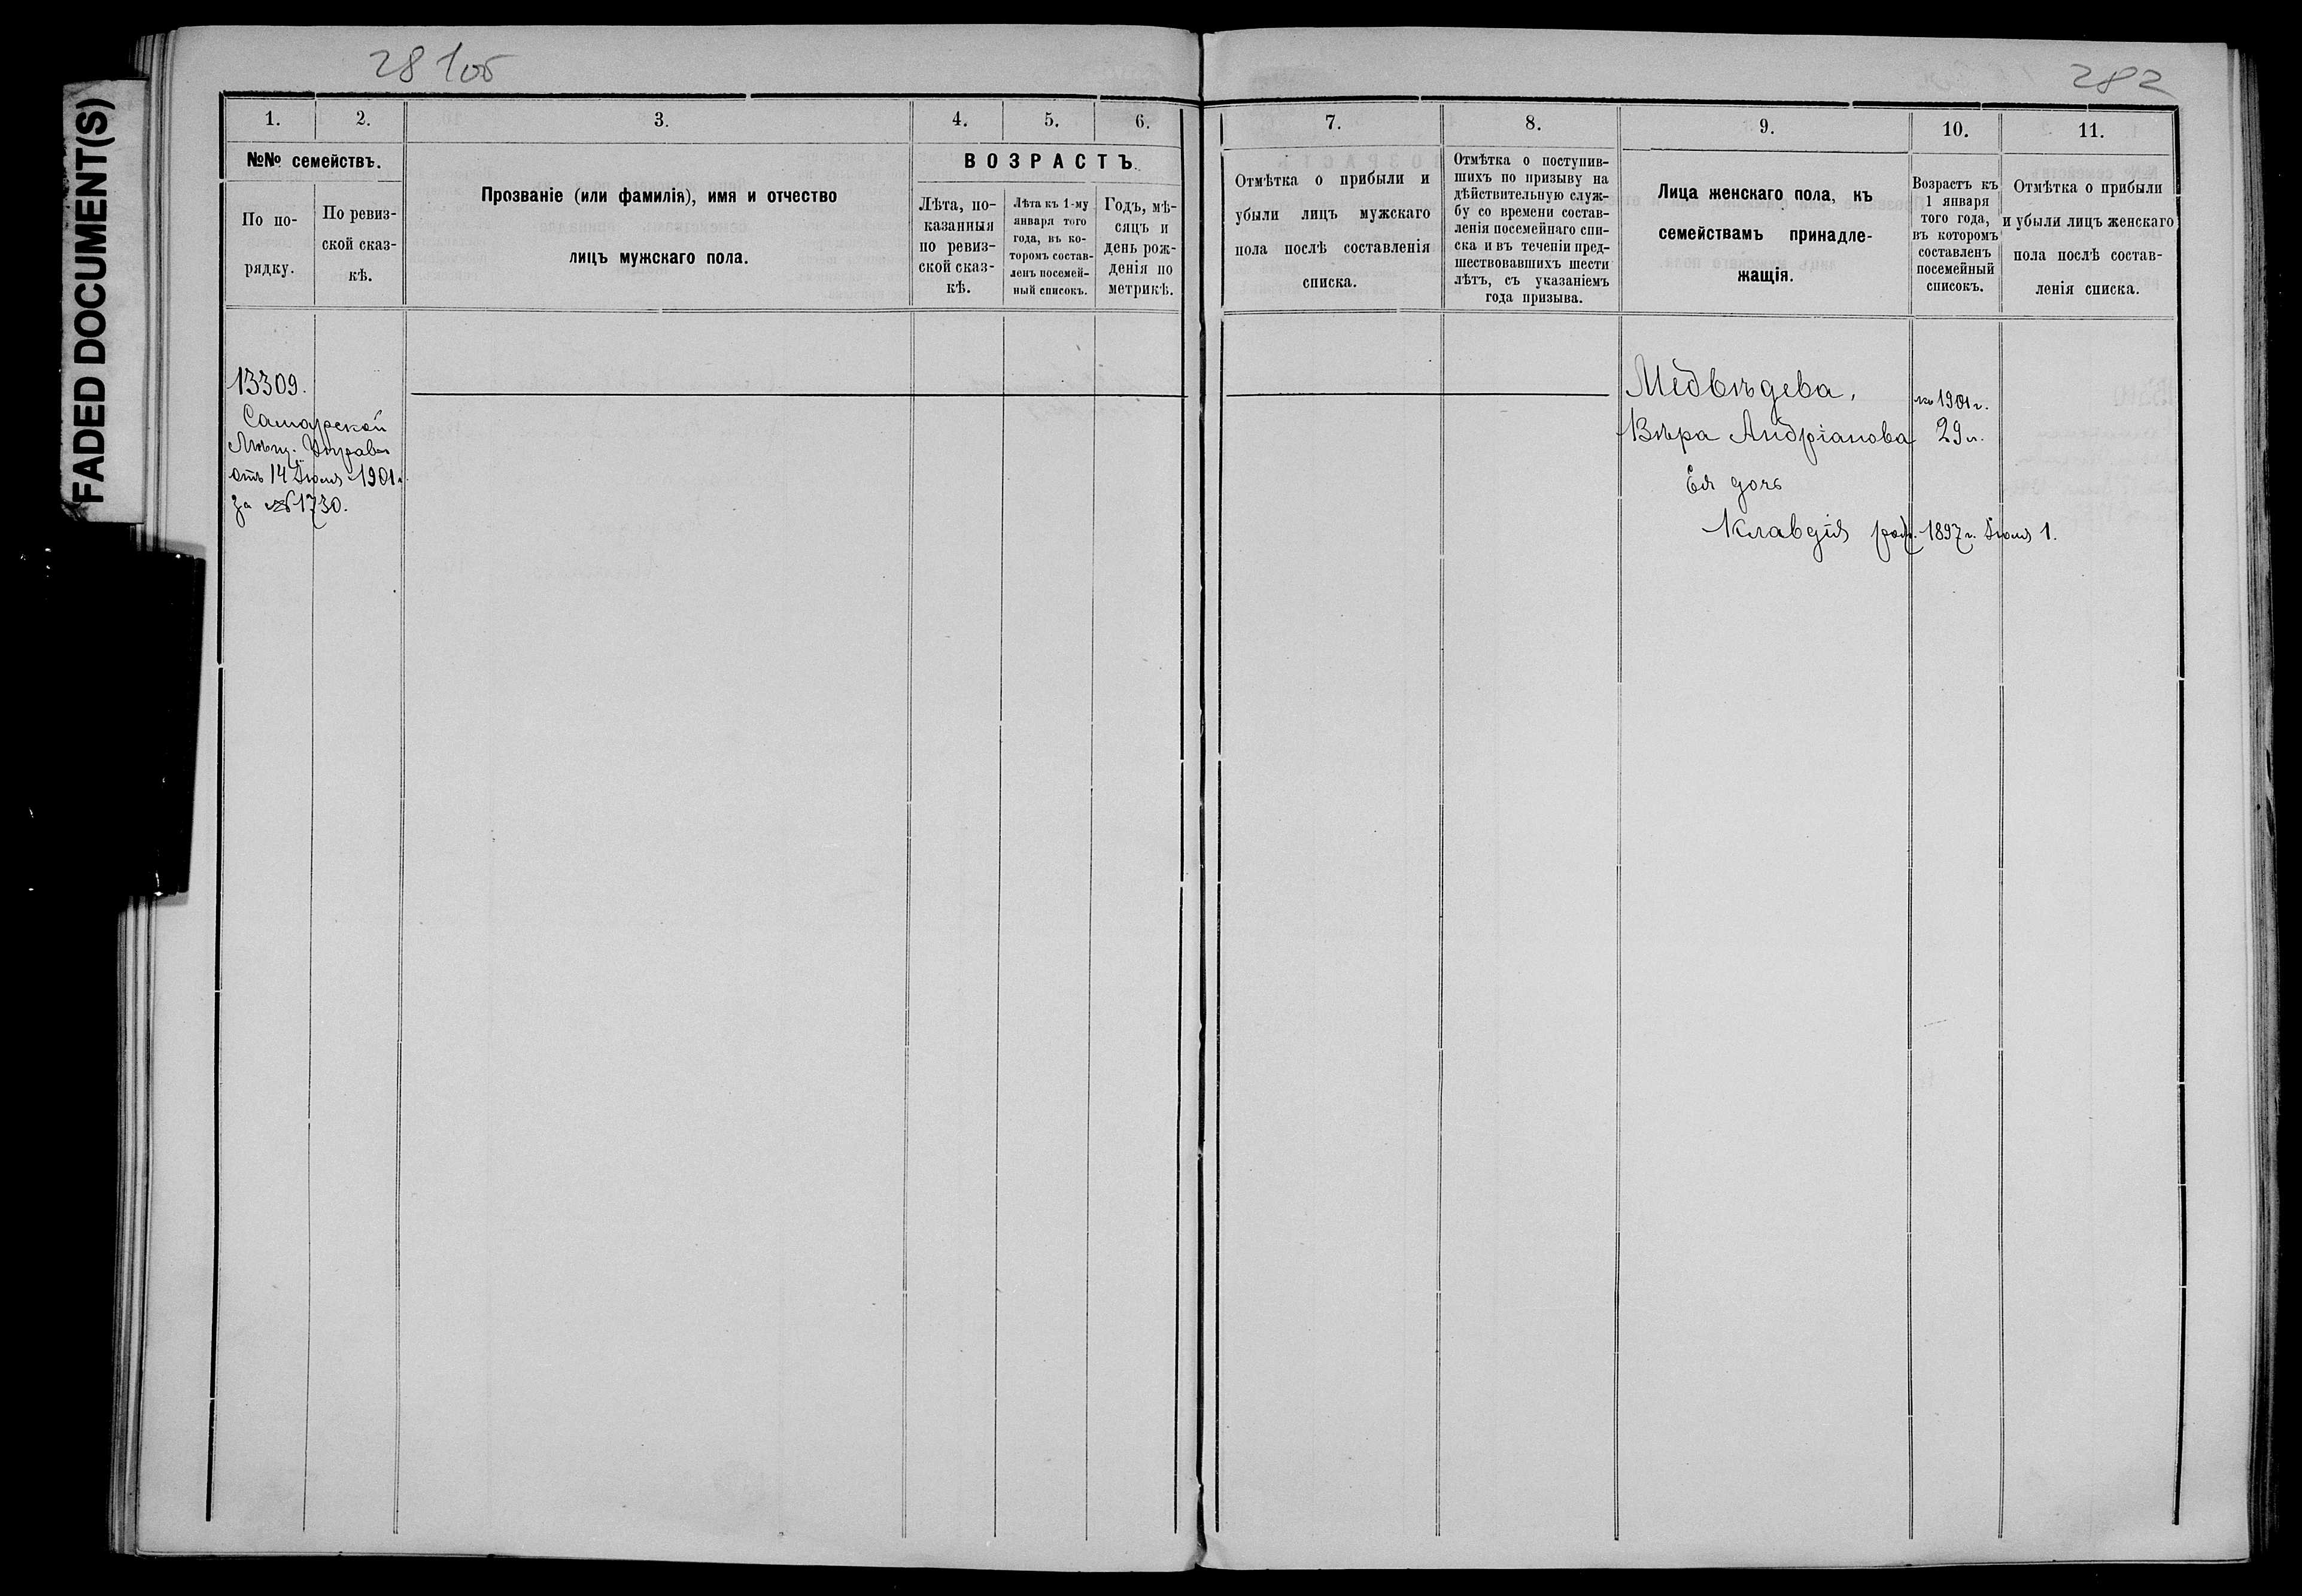 FADED DOCUMENT(S)
281об
282
1.
2.
3.
4.
5.
6.
№№ семействъ.
По по-
рядку.
По ревиз-
ской сказ-
кѣ.
Прозваніе (или фамилія), имя и отчество
лицъ мужскаго пола.
ВОЗРАСТЪ.
Лѣта, по-
казанныя
по ревиз-
ской сказ-
кѣ.
Лѣта къ 1-му
января того
года, въ ко-
торомъ состав-
ленъ посемей-
ный списокъ.
Годъ, мѣ-
сяцъ и
день рож-
денія по
метрикѣ.
7.
8.
9.
10.
11.
Отмѣтка о прибыли и
убыли лицъ мужскаго
пола послѣ составленія
списка.
Отмѣтка о поступив-
шихъ по призыву на
дѣйствительную служ-
бу со времени состав-
ленія посемейнаго спи-
ска и въ теченіи пред-
шествовавшихъ шести
лѣтъ, съ указаніемъ
года призыва.
Лица женскаго пола, къ
семействамъ принадле-
жащія.
Возрастъ къ
1 января
того года,
въ которомъ
составленъ
посемейный
списокъ.
Отмѣтка о прибыли
и убыли лицъ женскаго
пола послѣ состав-
ленія списка.
13309.
Самарской
Мѣщ. Управы
отъ 14 Іюля 1901 г.
за № 1730.
Медвѣдева,
къ 1901 г.
Вѣра Андріанова 29 л.
Ея дочь
Клавдія род. 1897 г. Іюля 1.